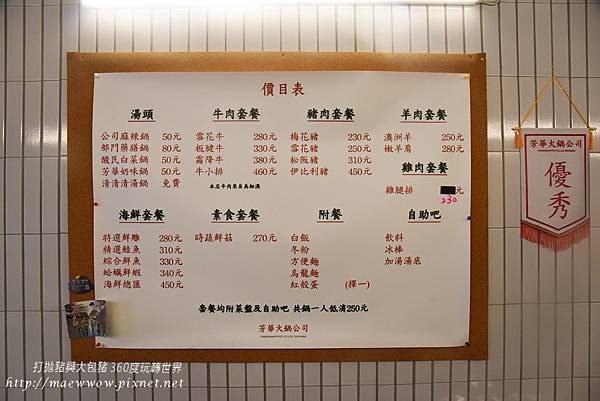 價目表
湯頭
公司麻辣鍋 50元
部門藥膳鍋 80元
酸民白菜鍋 50元
芳華奶味鍋 50元
清清清湯鍋 免費
牛肉套餐
雪花牛 280元
板腱牛 330元
霜降牛 380元
牛小排 460元
本店牛肉來自美紐澳
豬肉套餐
梅花豬 230元
雪花豬 250元
松阪豬 310元
伊比利豬 450元
羊肉套餐
澳洲羊 250元
嫩羊肩 280元
雞肉套餐
雞腿排 元
230
海鮮套餐
特選鮮雕 280元
精選鮭魚 310元
綜合鮮魚 330元
蛤蠣鮮蝦 340元
海鮮總匯 450元
素食套餐
時蔬鮮菇 270元
附餐
白飯
冬粉
方便麵
烏龍麵
紅殼蛋 (擇一)
自助吧
飲料
冰棒
加湯湯底
套餐均附菜盤及自助吧 共鍋一人低消250元
芳華火鍋公司
芳華火鍋公司
優秀
打拋豬與大包豬 360度玩轉世界
http://maewwow.pixnet.net